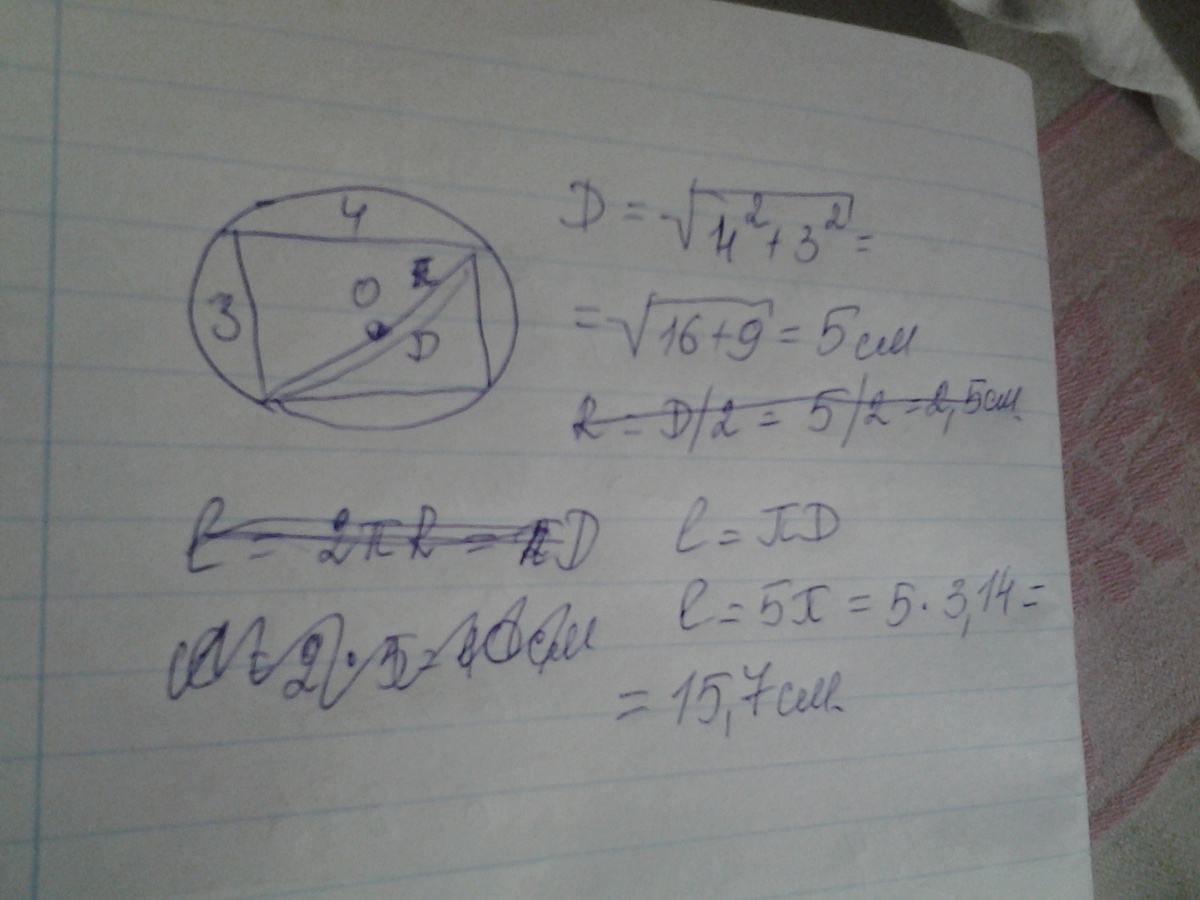 4
3
O
D
D = √4² + 3² =
= √16+9 = 5 см
R = D/2 = 5/2 = 2,5 см.
l = 2πR = πD
l = πD
l = 5π = 5 · 3,14 =
= 15,7 см.